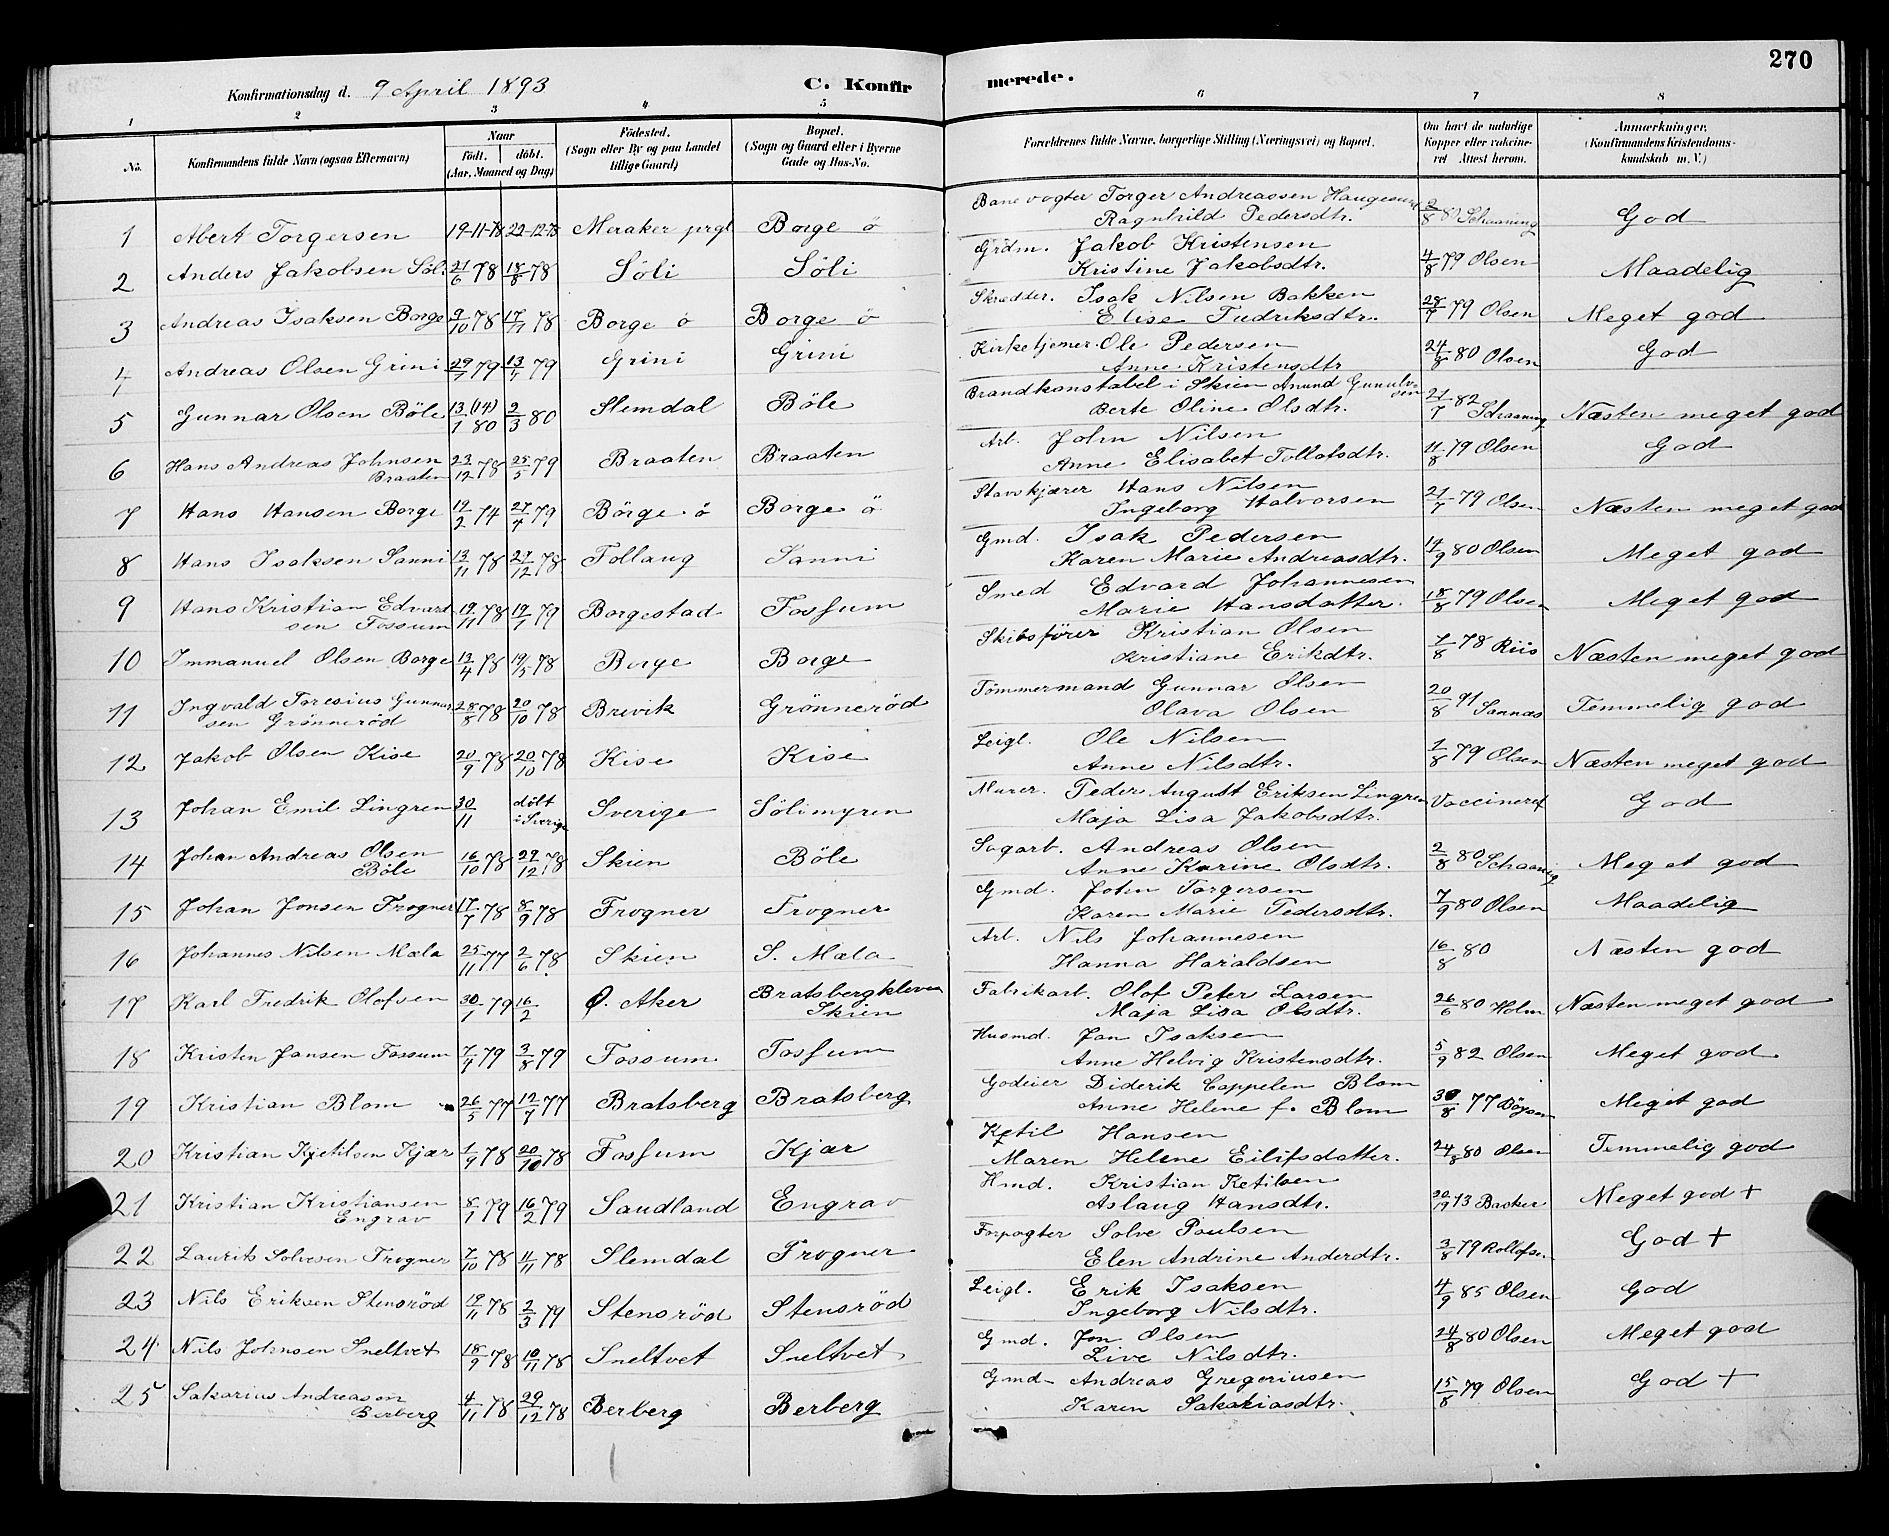 270
Konfirmationsdag d. 9 April 1893 C. Konfirmerede.
1 2 3 4 5 6 7 8
No. Konfirmandens fulde Navn (ogsaa Efternavn) Naar født. døbt. (Aar, Maaned og Dag) Fødested. (Sogn eller By og paa Landet tillige Gaard) Bopæl. (Sogn og Gaard eller i Byerne Gade og Hus-No. Forældrenes fulde Navne, borgerlige Stilling (Næringsvei) og Bopæl. Om havt de naturlige Kopper eller vaccineret Attest herom. Anmærkninger. (Konfirmandens Kristendomskundskab m. V.)
1 Abert Torgersen 19-11-78 22-12-78 Meraker prgl Borge ö Banevogter Torger Andreassen Haugesund
Ragnhild Pedersdtr. Schaaning God
2 Anders Jakobsen Söli 21/6 78 18/8 78 Söli Söli Grdm. Jakob Kristensen
Kristine Jakobsdtr. 4/8 79 Olsen Maadelig
3 Andreas Isaksen Borge 9/10 78 17/11 78 Borge ö Borge ö Skrædder. Isak Nilsen Bakken
Elise Fredriksdtr. 28/7 79 Olsen Meget god
4 Andreas Olsen Grini 29/1 79 13/4 79 Grini Grini Kirketjener. Ole Pedersen
Anne Kristensdtr 24/8 80 Olsen God
5 Gunnar Olsen Böle 13(14)/1 80 2/3 80 Slemdal Böle Brandkonstabel i Skien Anund Gunulvsen
Berte Oline Olsdtr. 21/7 82 Schaaning Næsten meget god
6 Hans Andreas Johnsen
Braaten 23/12 78 25/5 79 Braaten Braaten Arb. John Nilsen
Anne Elisabet Tollofsdtr. 11/8 79 Olsen God
7 Hans Hansen Borge 19/2 74 27/4 79 Börge ö Borge ö Stavskjærer Hans Nilsen
Ingeborg Halvorsen 21/7 79 Olsen Næsten meget god
8 Hans Isaksen Sanni 13/11 78 27/12 78 Follaug Sanni Gmd. Isak Pedersen
Karen Marie Andreasdtr. 14/9 80 Olsen Meget god
9 Hans Kristian Edvard
sen Fossum 19/11 78 19/1 79 Borgestad Fossum Smed Edvard Johannesen
Marie Hansdatter. 18/8 79 Olsen Meget god
10 Immanuel Olsen Borge 13/4 78 19/5 78 Borge Borge Skibsfører Kristian Olsen
Kristiane Erikdtr. 7/8 78 Riis Næsten meget god
11 Ingvald Toresius Gunnar
sen Grönneröd 28/8 78 20/10 78 Brevik Grönneröd Tömmermand Gunnar Olsen
Olava Olsen 20/8 91 Sannæs Temmelig god
12 Jakob Olsen Kise 20/9 78 20/10 78 Kise Kise Leigl. Ole Nilsen
Anne Nilsdtr. 1/8 79 Olsen Næsten meget god
13 Johan Emil Lingren 30/11 döbt i Sverige Sverige Sölimyren Murer. Peder August Eriksen Lingren
Maja Lisa Jakobsdtr. Vaccineret God
14 Johan Andreas Olsen
Böle 16/10 78 29/12 78 Skien Böle Sagarb. Andreas Olsen
Anne Karine Olsdtr. 2/8 80 Schaaning Meget god
15 Johan Jonsen Frogner 17/7 78 8/9 78 Frogner Frogner Gmd. John Torgersen
Karen Marie Pedersdtr. 7/9 80 Olsen Maadelig
16 Johannes Nilsen Mæla 25/11 77 2/6 78 Skien S. Mæla Arb. Nils Johannesen
Hanna Haraldsen 16/8 80 Næsten god
17 Karl Fredrik Olofsen 30/1 79 16/2 Ø. Aker Bratsbergkleven
Skien Fabrikarb. Olof Peter Larsen
Maja Lisa Olsdtr. 26/6 80 Holm Næsten meget god
18 Kristen Jansen Fossum 7/4 79 3/8 79 Fossum Fossum Husmd. Jan Isaksen
Anne Helvig Kristensdtr. 5/9 82 Olsen Meget god
19 Kristian Blom 26/5 77 12/7 77 Bratsberg Bratsberg Godeier Diderik Cappelen Blom
Anne Helene f. Blom 30/8 77 Meget god
20 Kristian Kjetilsen Kjær 1/9 78 20/10 78 Fossum Kjær Ketil Hansen
Maren Helene Eilifsdatter. 24/8 80 Olsen Temmelig god
21 Kristian Kristiansen
Engrav 8/1 79 16/2 79 Saudland Engrav Hmd. Kristian Ketilsen
Aslaug Hansdtr. Backer Meget god +
22 Laurits Solvesen Frogner 7/10 78 11/11 78 Slemdal Frogner Forpagter Solve Poulsen
Elen Andrine Andersdtr. 3/8 79 Rollofsen God +
23 Nils Eriksen Stensröd 19/11 78 2/3 79 Stensröd Stensröd Leigl. Erik Isaksen
Ingeborg Nilsdtr. 4/9 85 Olsen God
24 Nils Johnsen Sneltvet 18/9 78 10/11 78 Sneltvet Sneltvet Gmd. Jon Olsen
Live Nilsdtr. 24/8 80 Olsen Meget god
25 Sakarius Andreasen
Berberg 4/11 78 29/12 78 Berberg Berberg Gmd Andreas Gregeriusen
Karen Sakariasdtr. 15/8 79 Olsen God +